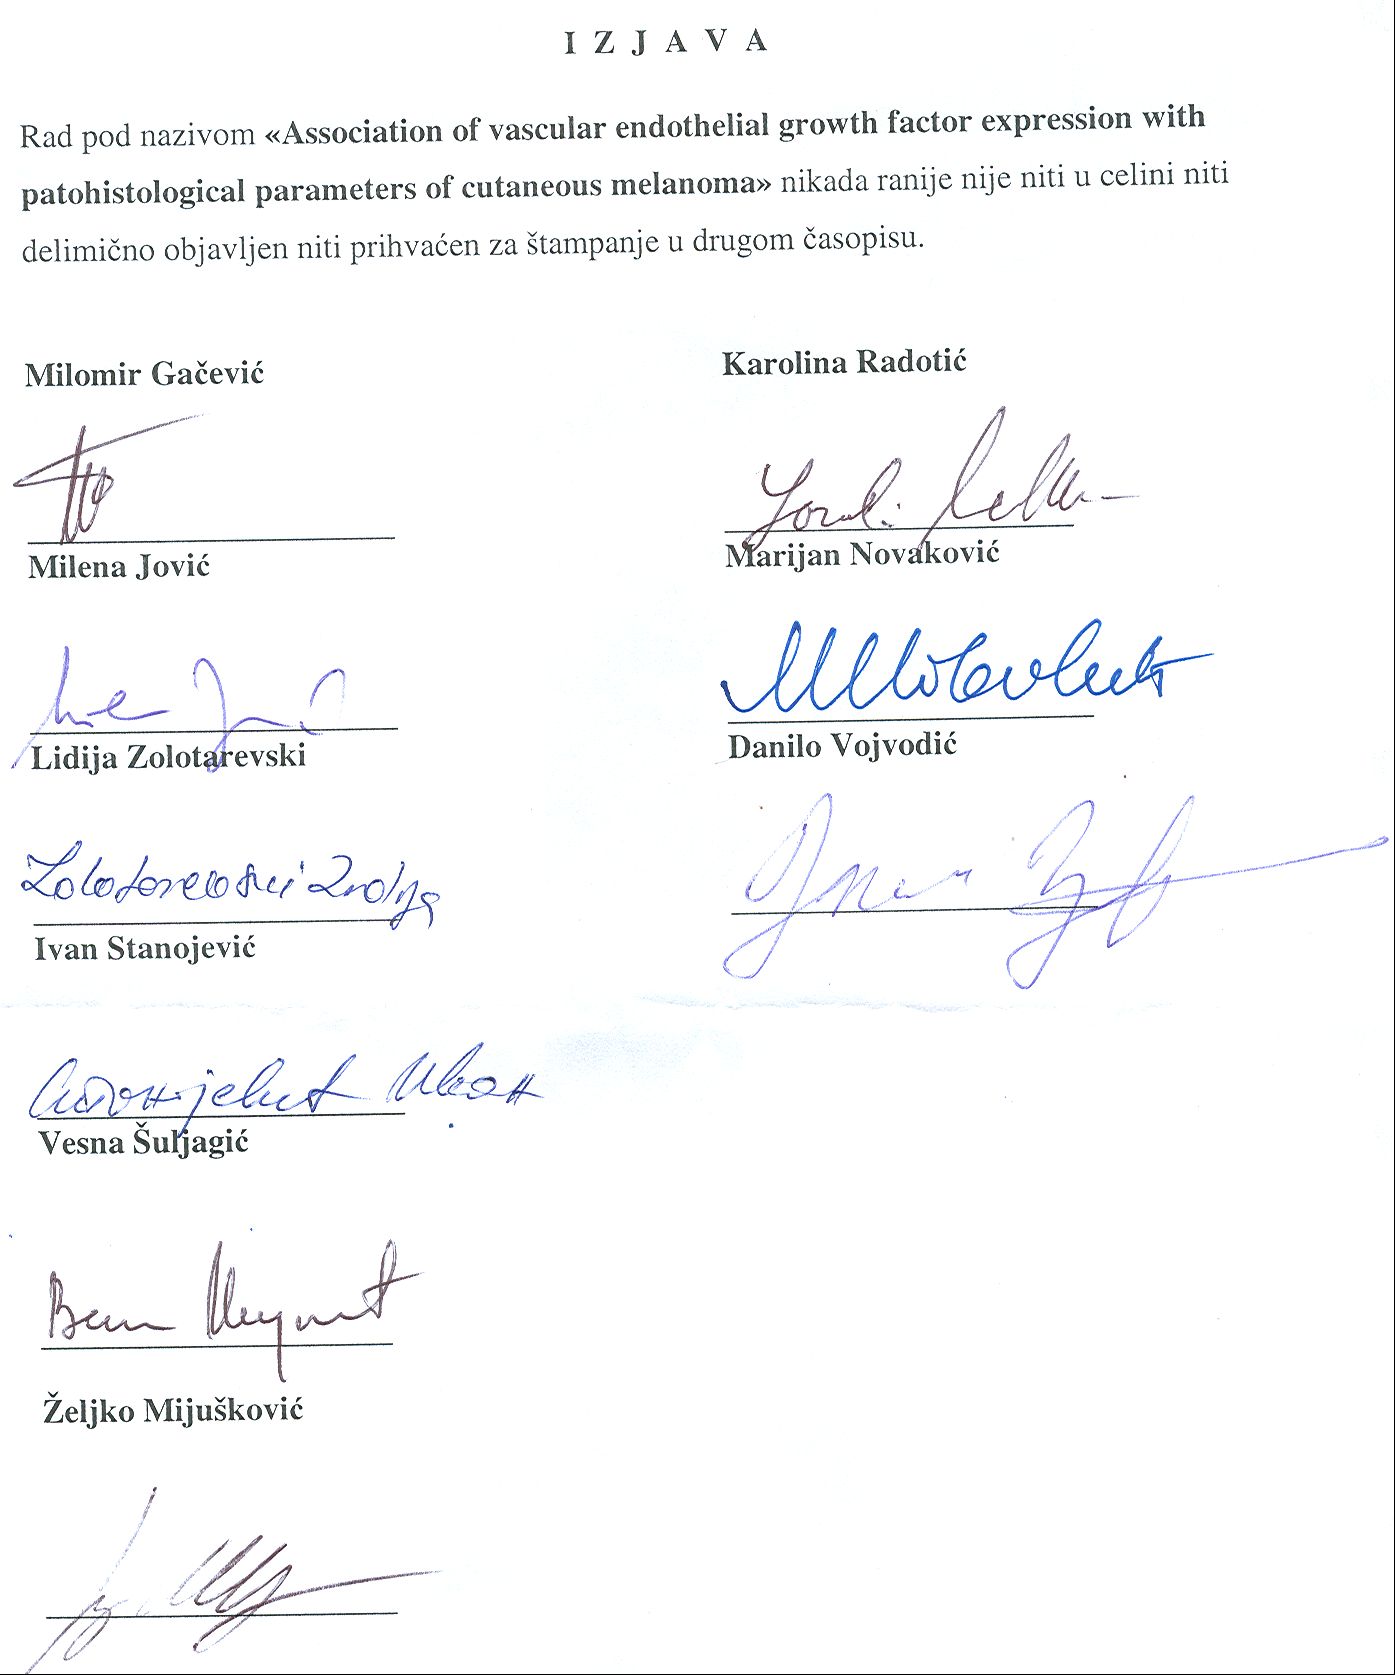 I Z J A V A
Rad pod nazivom «Association of vascular endothelial growth factor expression with
patohistological parameters of cutaneous melanoma» nikada ranije nije niti u celini niti
delimično objavljen niti prihvaćen za štampanje u drugom časopisu.
Milomir Gačević
Milena Jović
Lidija Zolotarevski
Zolotarevski Lidija
Ivan Stanojević
Vesna Šuljagić
Željko Mijušković
Karolina Radotić
Marijan Novaković
Danilo Vojvodić